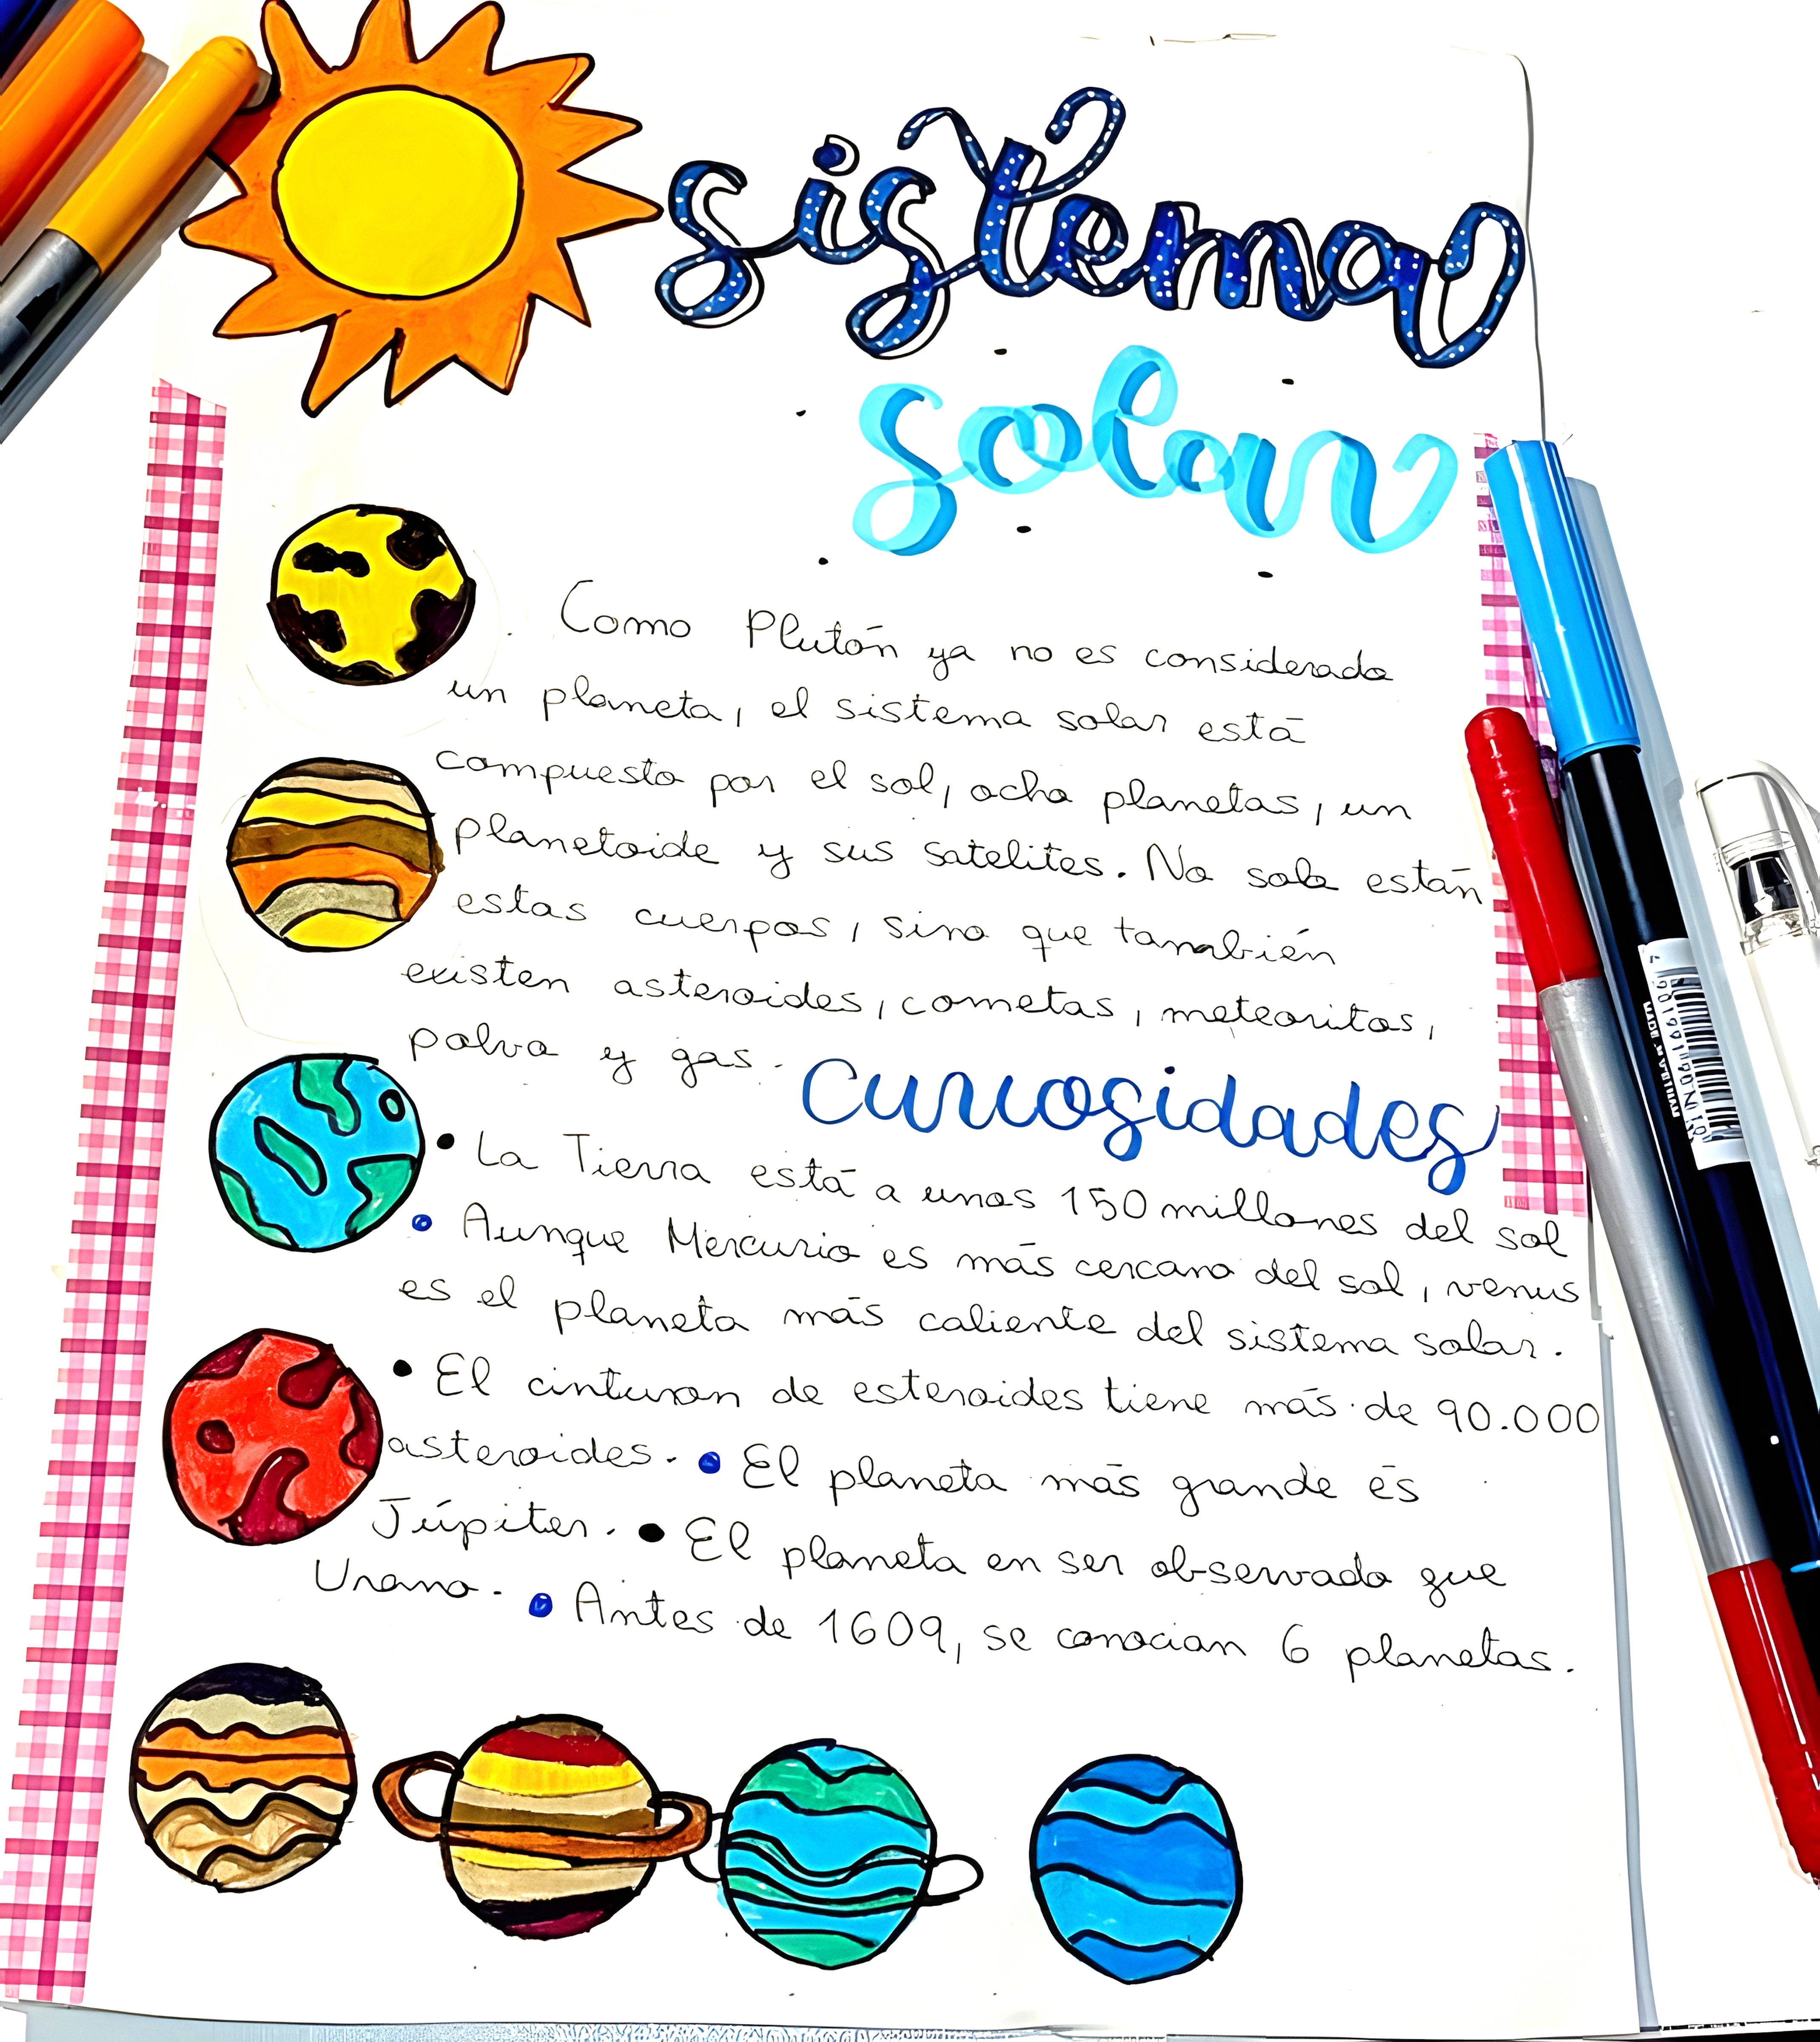 sistema
solar
Como Plutón ya no es considerado
un planeta, el sistema solar está
compuesto por el sol, ocho planetas, un
planetoide y sus satelites. No solo están
estos cuerpos, sino que también
existen asteroides, cometas, meteoritos,
polvo y gas.
Curiosidades
• La Tierra está a unos 150 millones del sol
• Aunque Mercurio es más cercano del sol, venus
es el planeta más caliente del sistema solar.
• El cinturon de esteroides tiene más de 90.000
asteroides. • El planeta más grande es
Júpiter. • El planeta en ser observado que
Urano. • Antes de 1609, se conocian 6 planetas.